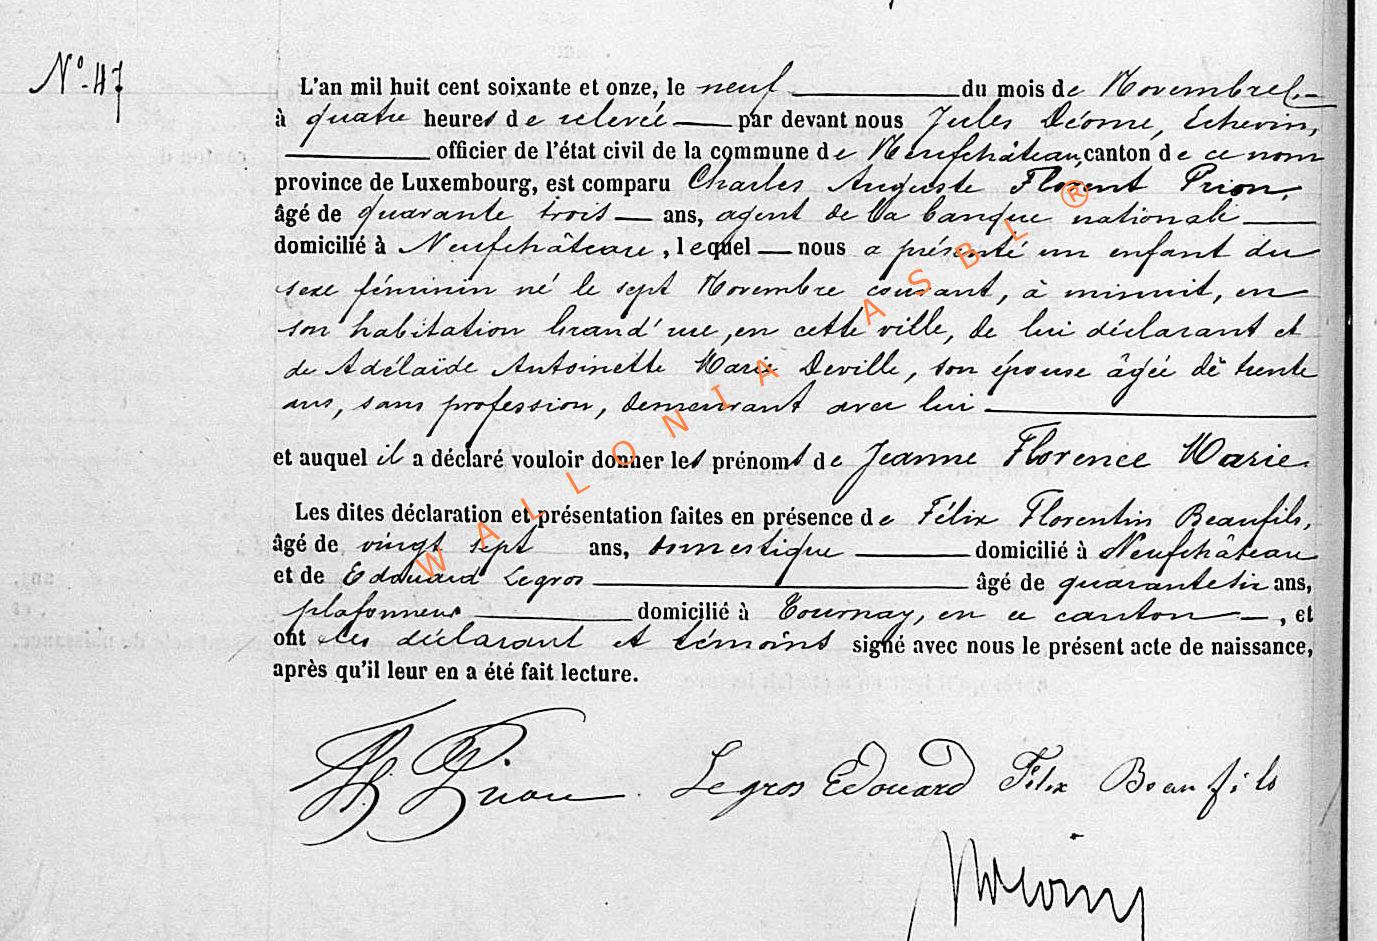 N° 47
L'an mil huit cent soixante et onze, le neuf du mois de Novembre
à quatre heures de relevée par devant nous Jules Déome, Echevin,
officier de l'état civil de la commune de Neufchâteau, canton de ce nom
province de Luxembourg, est comparu Charles Auguste Florent Prion,
âgé de quarante trois ans, agent de la banque nationale
domicilié à Neufchâteau, lequel nous a présenté un enfant du
sexe féminin né le sept Novembre courant, à minuit, en
son habitation Grand'rue, en cette ville, de lui déclarant et
de Adélaïde Antoinette Marie Deville, son épouse âgée de trente
ans, sans profession, demeurant avec lui
et auquel il a déclaré vouloir donner les prénoms de Jeanne Florence Marie.
Les dites déclaration et présentation faites en présence de Félix Florentin Beaufils,
âgé de vingt sept ans, domestique domicilié à Neufchâteau
et de Edouard Legros âgé de quarante six ans,
plafonneur domicilié à Tournay, en ce canton, et
ont les déclarant et témoins signé avec nous le présent acte de naissance,
après qu'il leur en a été fait lecture.
Prion Legros Edouard Félix Beaufils
WALLONIA ASBL ®